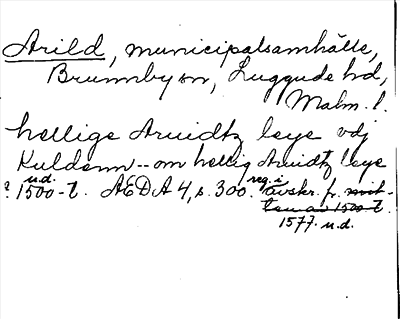 Arild, municipalsamhälle,
Brunnby sn, Luggude hd,
Malm. l.
hellige Aruidtz leye vdj
Kuldenn -- om hellig Aruidtz leye
? u.d. 1500-t. AEDA 4, s. 300. reg. i avskr. fr. mit-
ten av 1500-t.
1577. u.d.